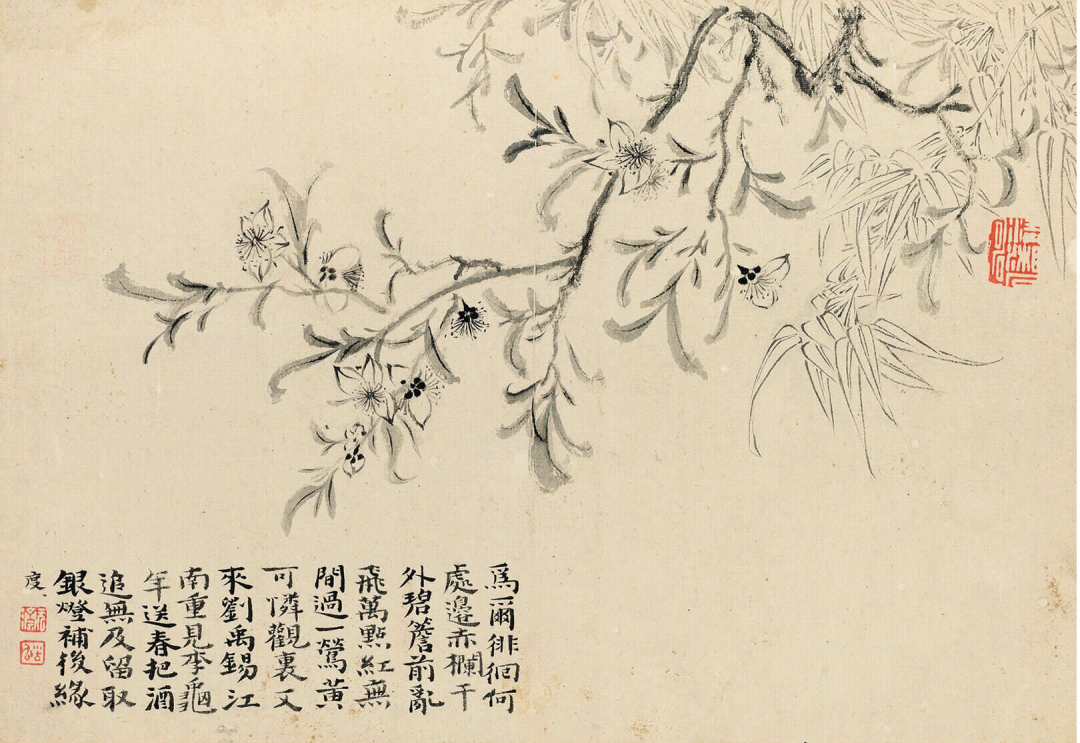 爲爾徘徊何
處邊赤欄干
外碧簷前亂
飛萬點紅無
間過一鶯黃
可憐觀裏又
來劉禹錫江
南重見李龜
年送春把酒
追無及留取
銀燈補後緣
度、